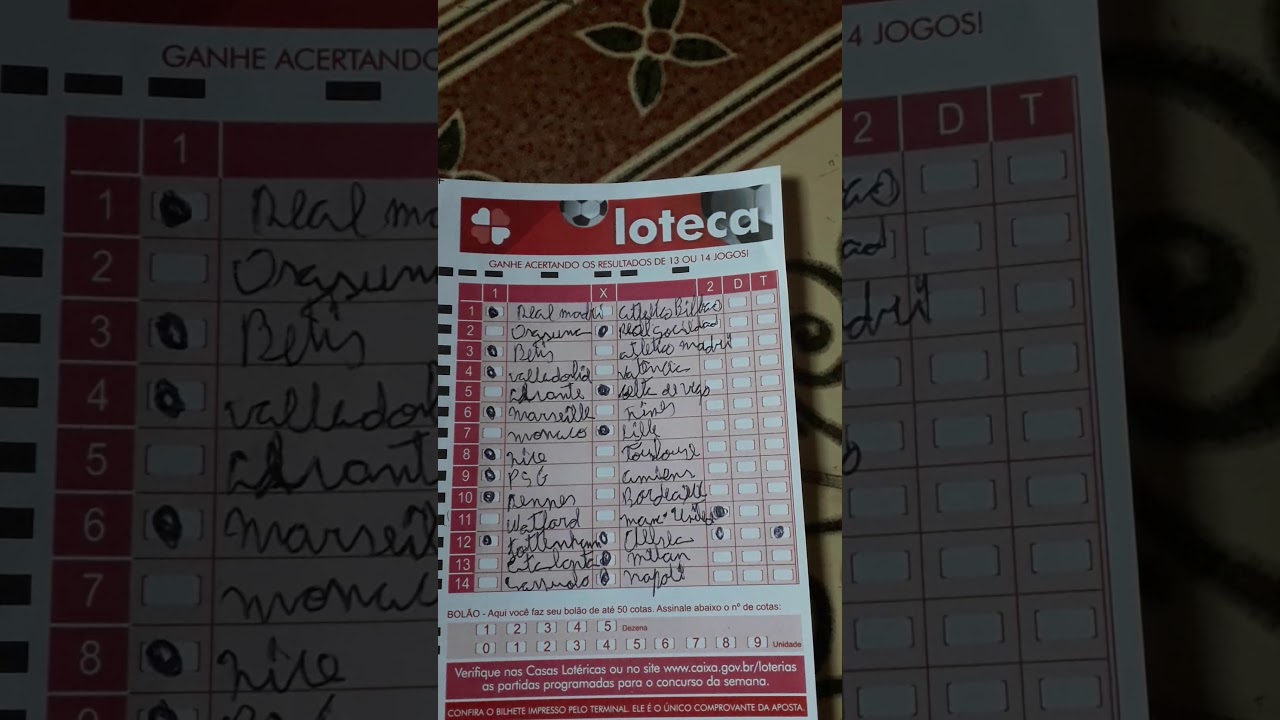 loteca
GANHE ACERTANDO OS RESULTADOS DE 13 OU 14 JOGOS!
1 X 2 D T
1 Real madri atletico Bilbao
2 Orasuna Real Socidad
3 Betis atletico madri
4 valladolid valencia
5 celta de vigo
6 marseille nines
7 monaco Lille
8 nice Toulouse
9 PSG amiens
10 Rennes Bordeaux
11 Watford man. United
12 Tottenham Chelsea
13 atalanta milan
14 Sassuolo napoli
BOLÃO - Aqui você faz seu bolão de até 50 cotas. Assinale abaixo o nº de cotas:
1 2 3 4 5 Dezena
0 1 2 3 4 5 6 7 8 9 Unidade
Verifique nas Casas Lotéricas ou no site www.caixa.gov.br/loterias
as partidas programadas para o concurso da semana.
CONFIRA O BILHETE IMPRESSO PELO TERMINAL. ELE É O ÚNICO COMPROVANTE DA APOSTA.
GANHE ACERTANDO
1
1 Real mo
2 Orasuna
3 Betis
4 vallado
5
6 marseil
7 monac
8 nice
9
4 JOGOS!
2 D T